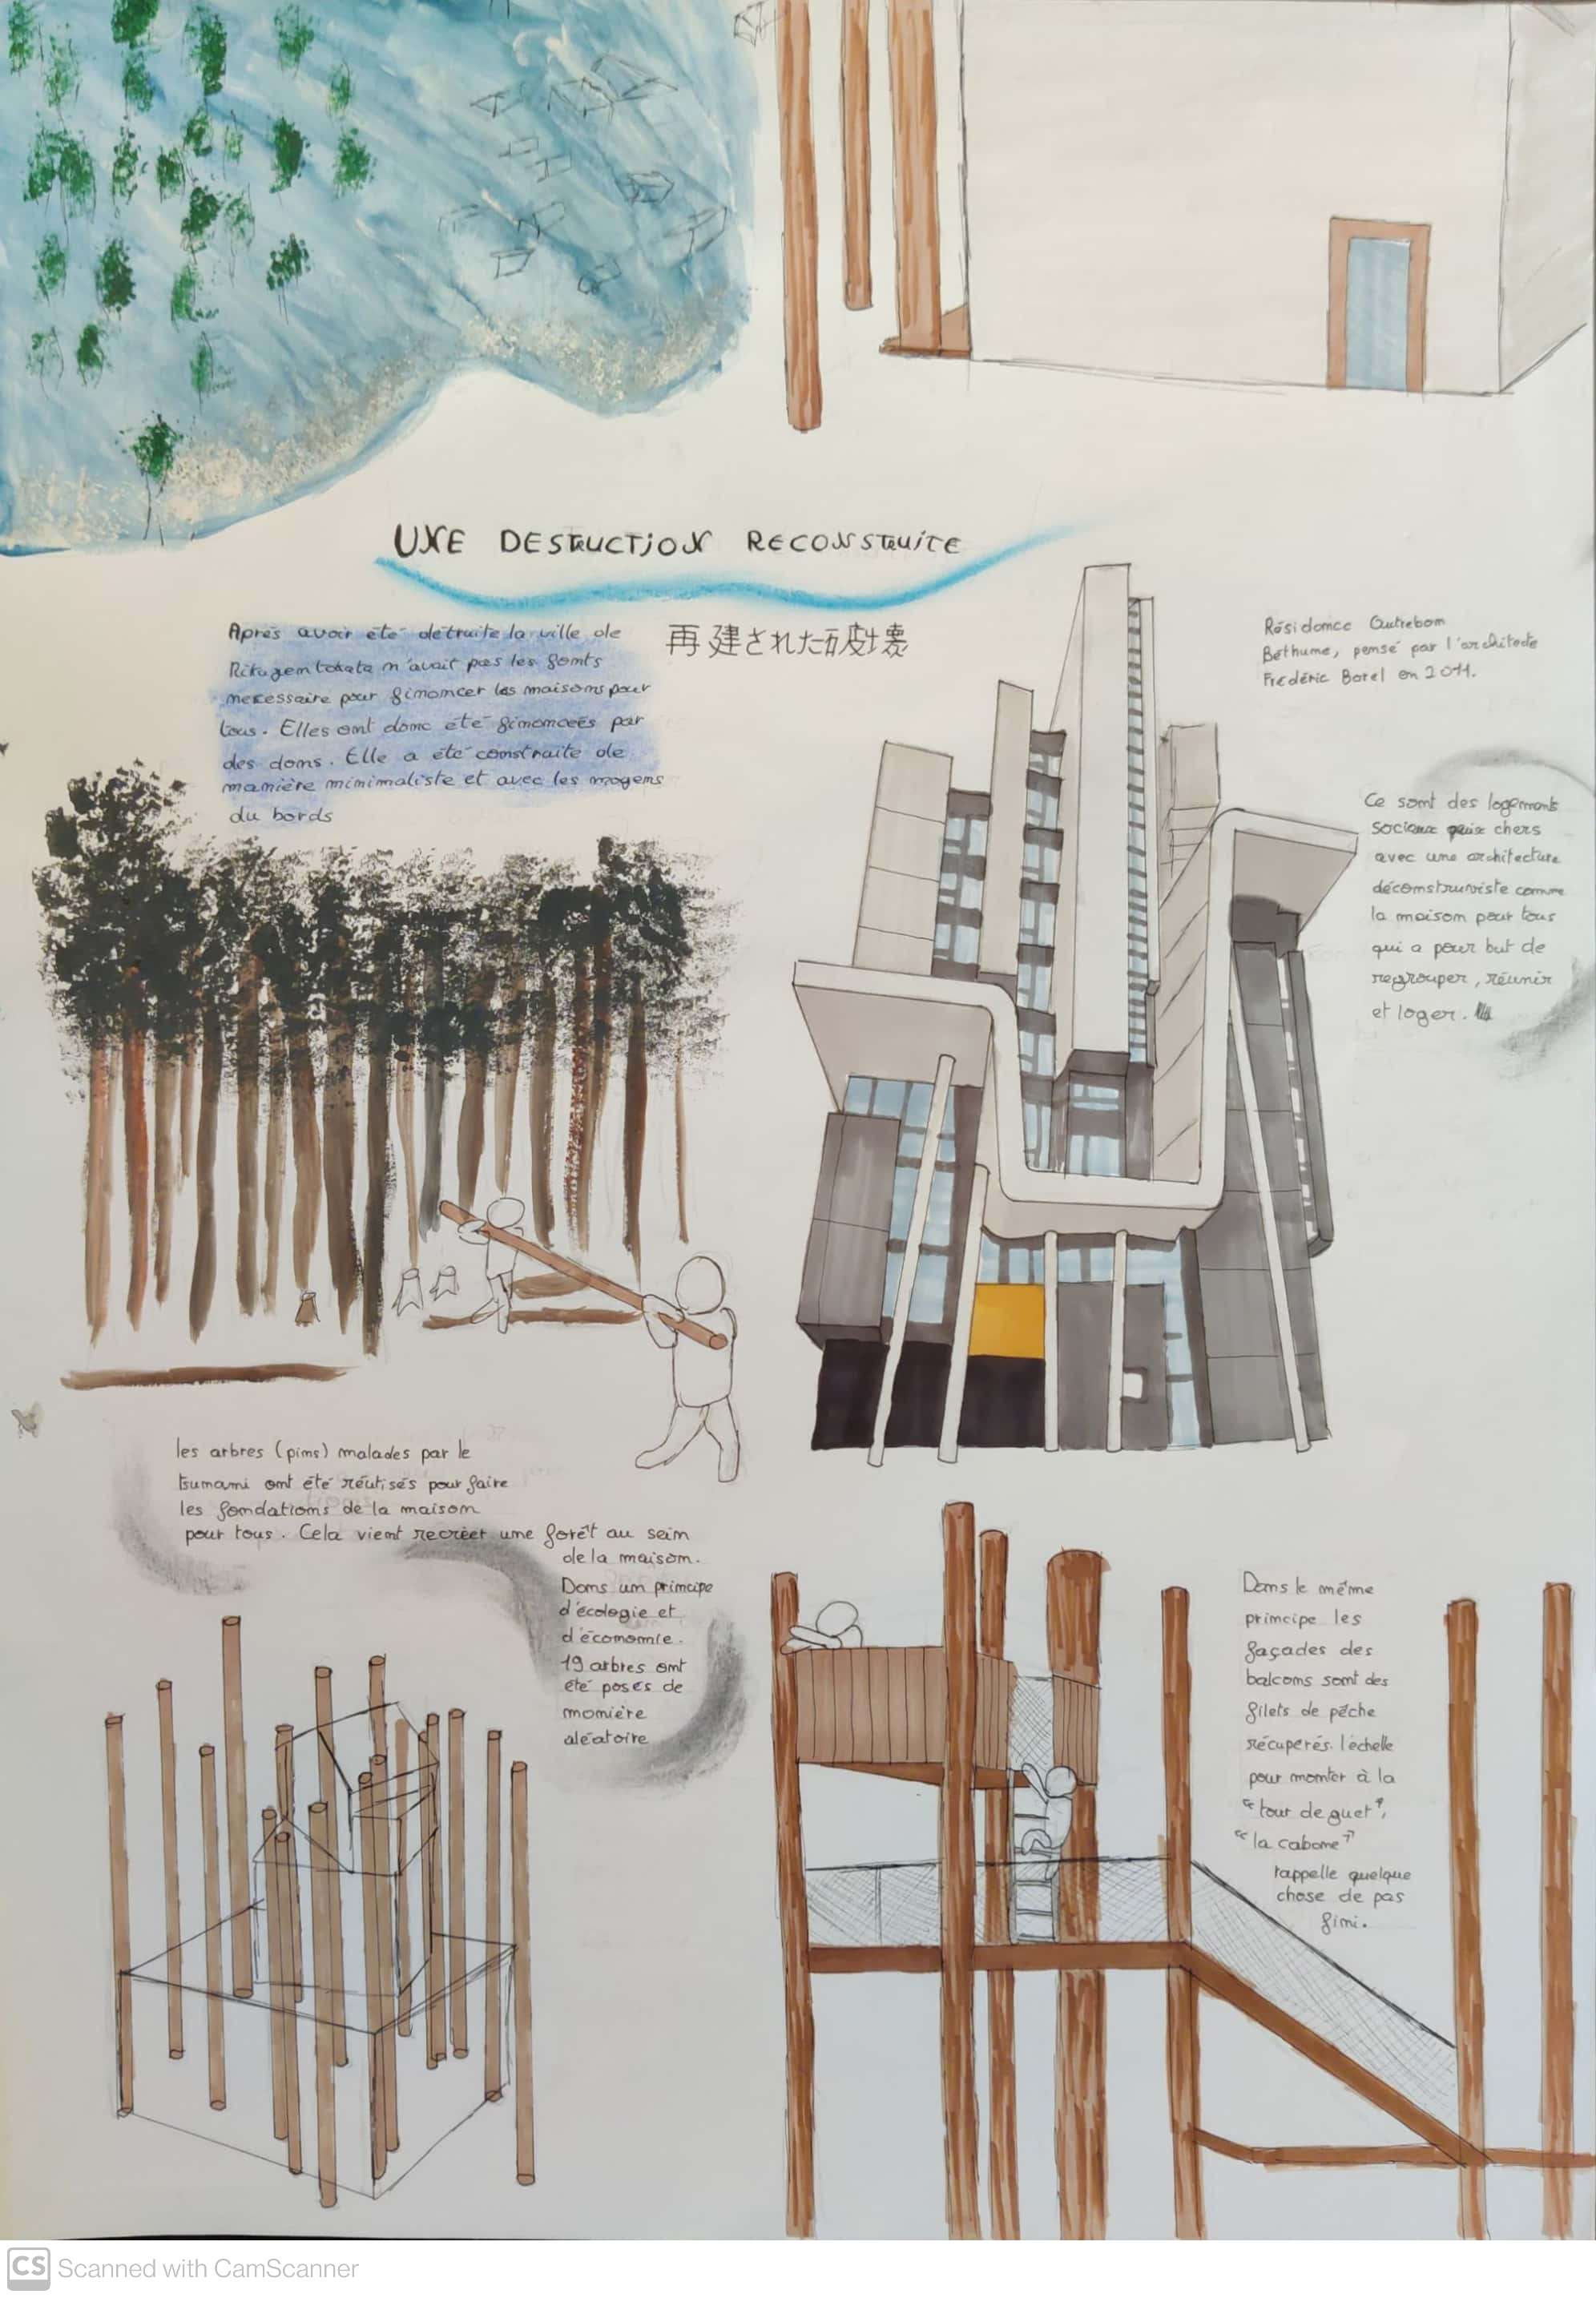 UNE DESTRUCTION RECONSTRUITE
再建された破壊
Après avoir été détruite la ville de
Rikuzentakata n'avait pas les fonts
necessaire pour financer les maisons pour
tous. Elles ont donc été financées par
des dons. Elle a été construite de
manière minimaliste et avec les moyens
du bords
Résidence Quatrebom
Béthume, pensé par l'architecte
Frédéric Borel en 2011.
Ce sont des logements
sociaux chers
avec une architecture
déconstruviste comme
la maison pour tous
qui a pour but de
regrouper, réunir
et loger.
les arbres (pins) malades par le
tsunami ont été réutisés pour faire
les fondations de la maison
pour tous. Cela vient recréer une forêt au sein
de la maison.
Dans un principe
d'écologie et
d'économie.
19 arbres ont
été posés de
manière
aléatoire
Dans le même
principe les
façades des
balcons sont des
filets de pêche
récuperés. l'échelle
pour monter à la
"tour de guet",
"la cabane"
rappelle quelque
chose de pas
fini.
CS Scanned with CamScanner